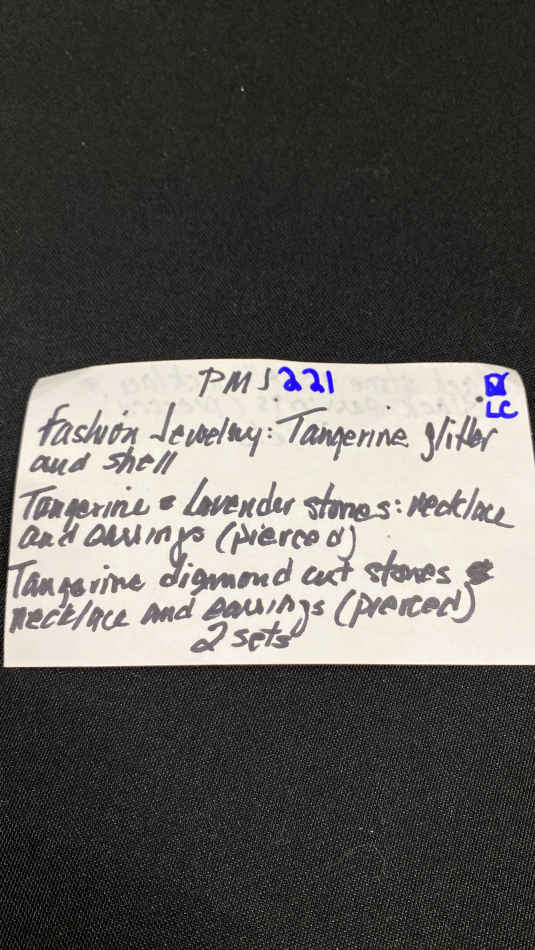 PMJ 221
LC
Fashion Jewelry: Tangerine glitter
and shell
Tangerine & Lavender stones: necklace
and earrings (pierced)
Tangerine diamond cut stones
necklace and earrings (pierced)
2 sets